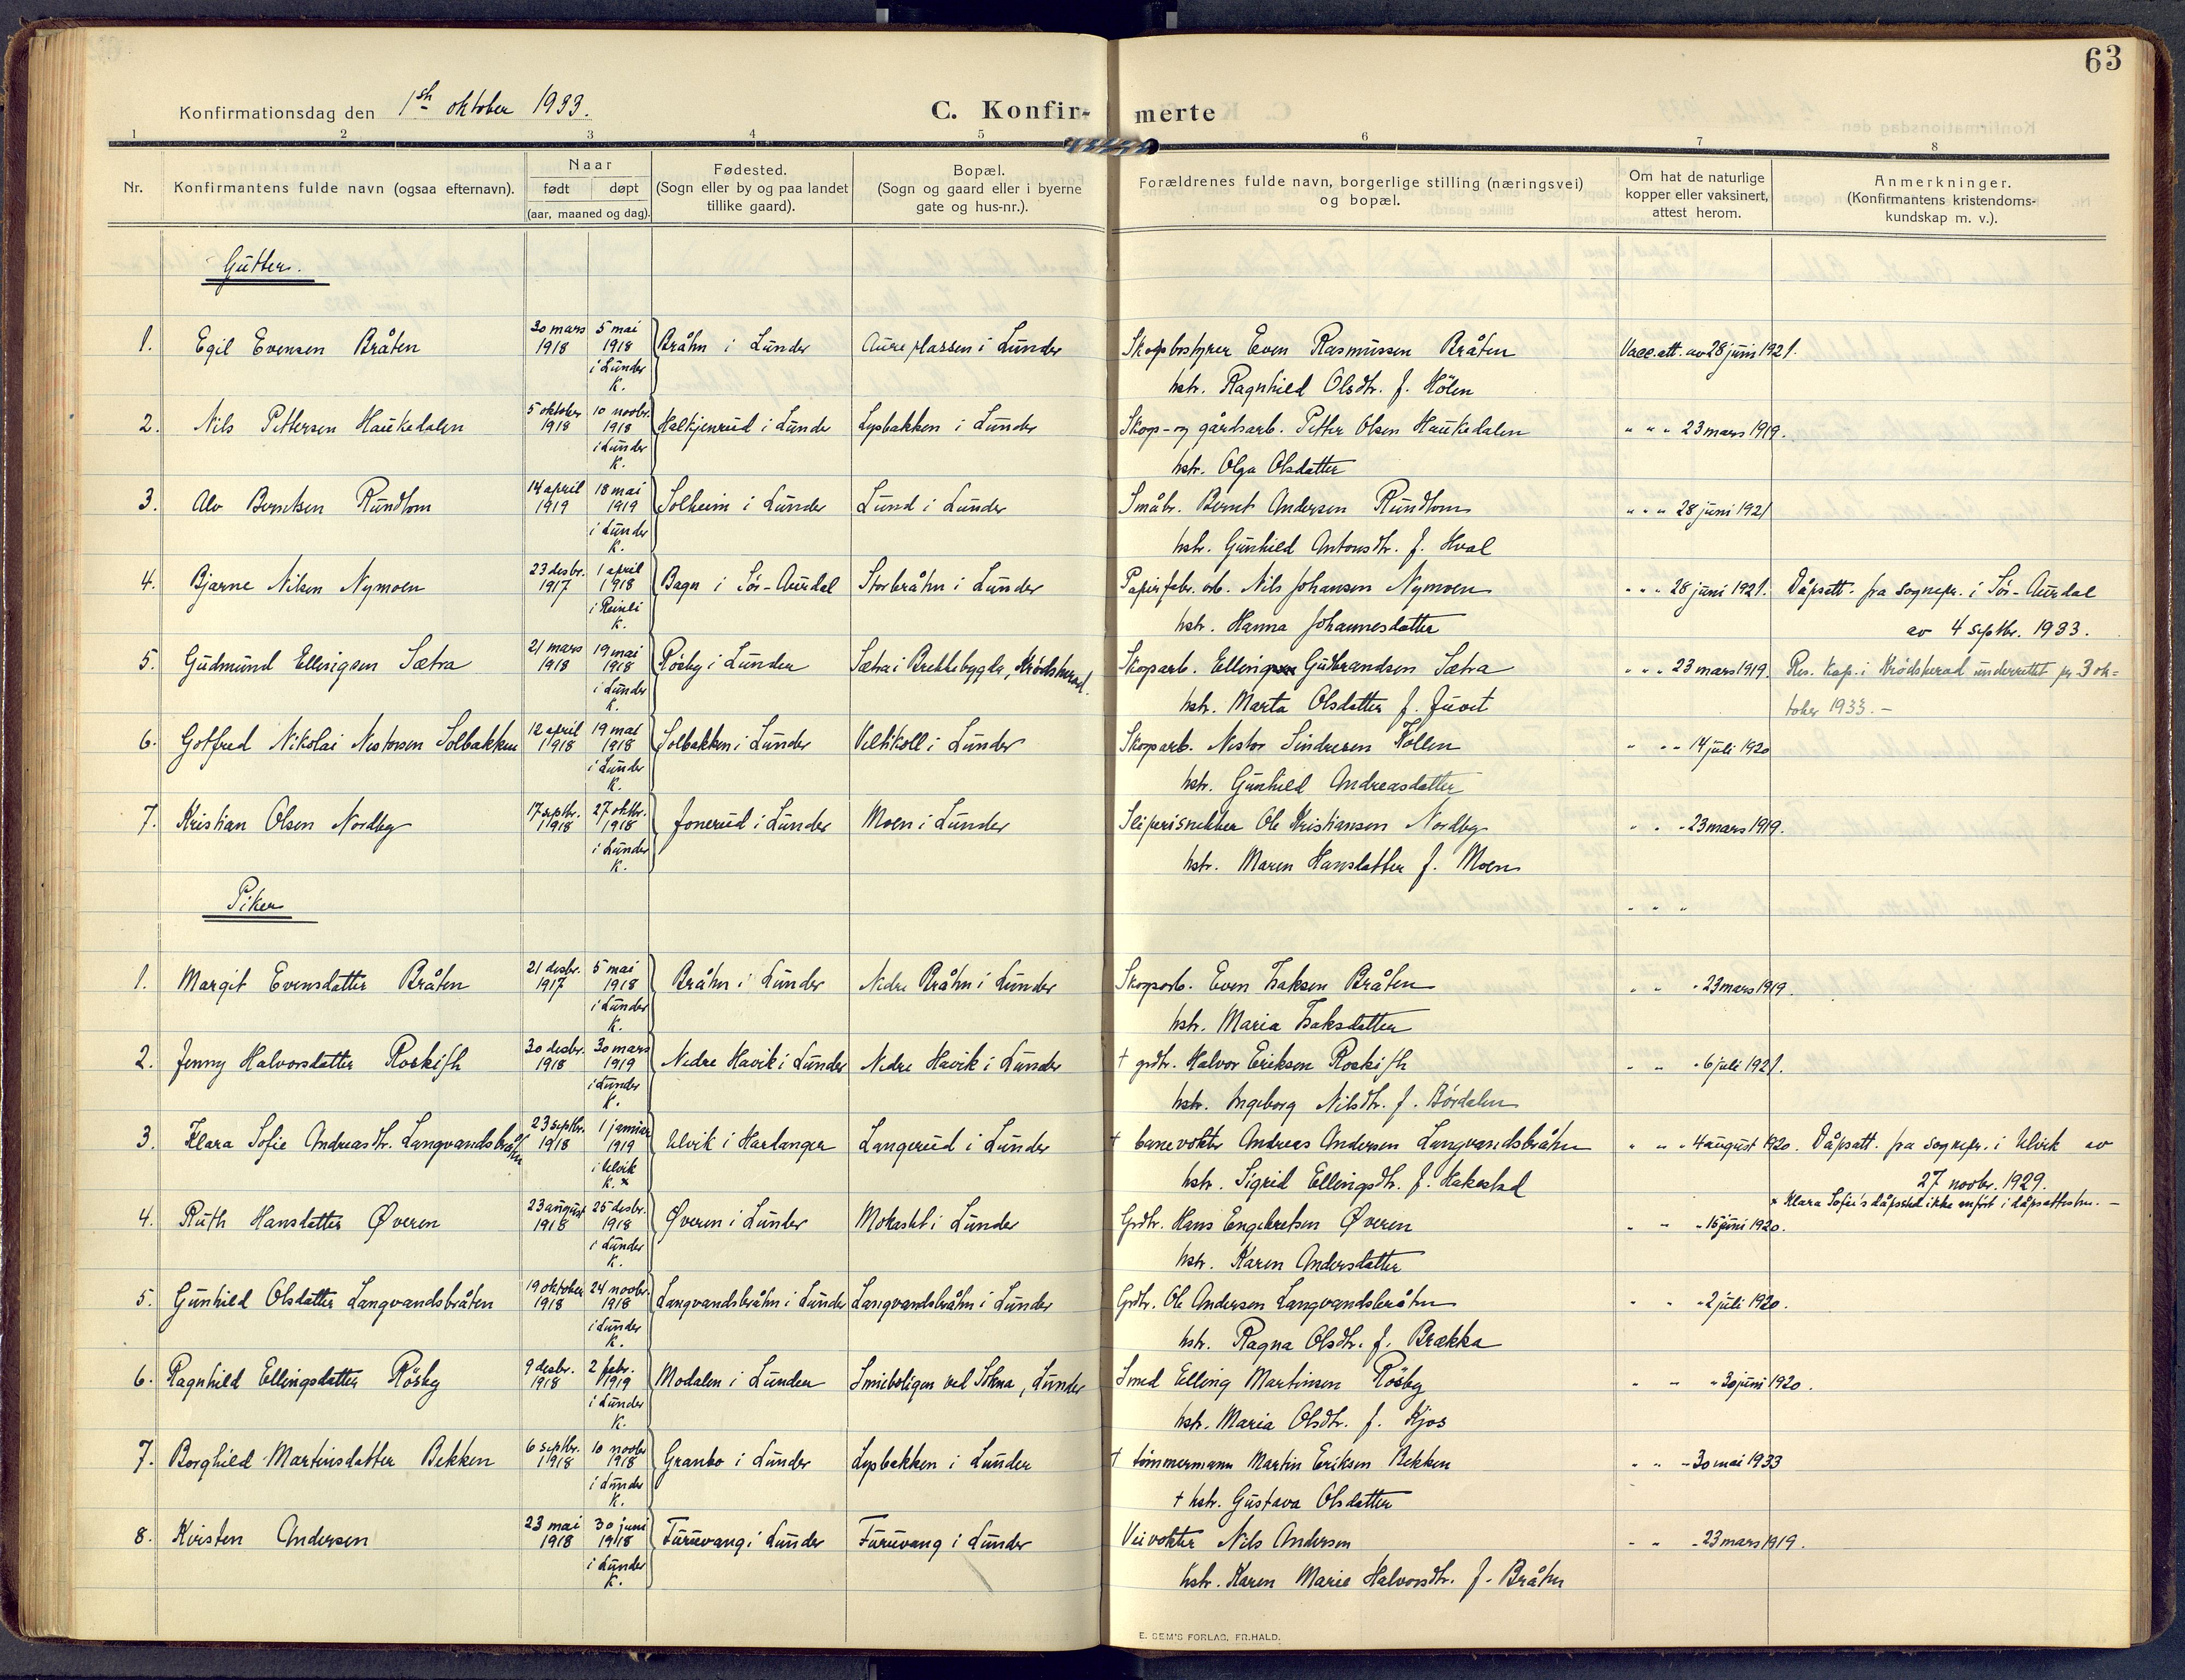 63
Konfirmationsdag den 1ste oktober 1933.
C. Konfirmerte
1 2 3 4 5 6 7 8
Nr.
Konfirmantens fulde navn (ogsaa efternavn).
Naar
født døpt
(aar, maaned og dag).
Fødested.
(Sogn eller by og paa landet
tillike gaard).
Bopæl.
(Sogn og gaard eller i byerne
gate og hus-nr.).
Forældrenes fulde navn, borgerlige stilling (næringsvei)
og bopæl.
Om hat de naturlige
kopper eller vaksinert,
attest herom.
Anmerkninger.
(Konfirmantens kristendoms-
kundskap m. v.).
Gutter.
1. Egil Evensen Bråten
30 mars 1918
5 mai 1918 i Lunder K.
Bråtn i Lunder
Aureplassen i Lunder
Skogbestyrer Even Rasmussen Bråten
hstr. Ragnhild Olsdtr. f. Hölen
Vacc.att. av 28 juni 1921.
2. Nils Pettersen Haukedalen
5 oktober 1918
10 novbr. 1918 i Lunder K.
Halkjenrud i Lunder
Lysbakken i Lunder
Skogs- og gårdsarb. Petter Olsen Haukedalen
hstr. Olga Olsdatter
" " " 23 mars 1919.
3. Alv Berntsen Rundtom
14 april 1919
18 mai 1919 i Lunder K.
Solheim i Lunder
Lund i Lunder
Småbr. Bernt Andersen Rundtom
hstr. Gunhild Antonsdtr. f. Hval
" " " 28 juni 1921
4. Bjarne Nilsen Nymoen
23 desbr. 1917
1 april 1918 i Reinli K.
Bagn i Sör-Aurdal
Storbråtn i Lunder
Papirfabr. arb. Nils Johansen Nymoen
hstr. Hanna Johannesdatter
" " " 28 juni 1921.
Dåpsatt. fra sognepr. i Sör-Aurdal
av 4 septbr. 1933.
5. Gudmund Ellingsen Sætra
21 mars 1918
19 mai 1918 i Lunder K.
Rösby i Lunder
Sætra i Bekkebygda, Krödsherad.
Skogsarb. Elling Gudbrandsen Sætra
hstr. Marta Olsdatter f. Juvet
" " " 23 mars 1919.
Res. kap. i Krödsherad underrettet pr. 3 ok=
tober 1933. -
6. Gotfred Nikolai Nestorsen Solbakken
12 april 1918
19 mai 1918 i Lunder K.
Solbakken i Lunder
Veltikoll i Lunder
Skogsarb. Nestor Sindresen Kollen
hstr. Gunhild Andreasdatter
" " " 14 juli 1920
7. Kristian Olsen Nordby
17 septbr. 1918
27 oktbr. 1918 i Lunder K.
Jonerud i Lunder
Moen i Lunder
Sliperisnekker Ole Kristiansen Nordby
hstr. Maren Hansdatter f. Moen
" " " 23 mars 1919.
Piker
" " "
1. Margit Evensdatter Bråten
21 desbr. 1917
5 mai 1918 i Lunder K.
Bråtn i Lunder
Nedre Bråtn i Lunder
Skogsarb. Even Isaksen Bråten
hstr. Maria Isaksdatter
" " " 23 mars 1919.
2. Jenny Halvorsdatter Roskifth
30 desbr. 1918
30 mars 1919 i Lunder K.
Nedre Havik i Lunder
Nedre Havik i Lunder
† grdbr. Halvor Eriksen Roskifth
hstr. Ingeborg Nilsdtr. f. Bördalen
" " " 6 juli 1921.
3. Klara Sofie Andreasdtr. Langvandsbråtn
23 septbr. 1918
1 januar 1919 i Ulvik K. ×
Ulvik i Hardanger
Langerud i Lunder
† banevokter Andreas Andersen Langvandsbråtn
hstr. Sigrid Ellingsdtr. f. Hakestad
" " " 4 august 1920.
Dåpsatt. fra sognepr. i Ulvik av
27 novbr. 1929.
× Klara Sofie's dåpssted ikke anfört i dåpsattesten. -
4. Ruth Hansdatter Øveren
23 august 1918
25 desbr. 1918 i Lunder K.
Øveren i Lunder
Mokastet i Lunder
Grdbr. Hans Engebretsen Øveren
hstr. Karen Andersdatter
" " " 16 juni 1920.
5. Gunhild Olsdatter Langvandsbråten
19 oktober 1918
24 novbr. 1918 i Lunder K.
Langvandsbråtn i Lunder
Langvandsbråtn i Lunder
Grdbr. Ole Andersen Langvandsbråtn
hstr. Ragna Olsdtr. f. Brækka
" " " 2 juli 1920.
6. Ragnhild Ellingsdatter Rösby
9 desbr. 1918
2 febr. 1919 i Lunder K.
Modalen i Lunder
Smieboligen ved Sokna, Lunder
Smed Elling Martinsen Rösby
hstr. Maria Olsdtr. f. Kjos
" " " 30 juni 1920.
7. Borghild Martinsdatter Bekken
6 septbr. 1918
10 novbr 1918 i Lunder K.
Granbo i Lunder
Lysbakken i Lunder
† tömmermann Martin Eriksen Bekken
† hstr. Gustava Olsdatter
" " " 30 mai 1933
8. Kirsten Andersen
23 mai 1918
30 juni 1918 i Lunder K.
Furuvang i Lunder
Furuvang i Lunder
Veivokter Nils Andersen
hstr. Karen Marie Halvorsdtr. f. Bråtn
" " " 23 mars 1919.
E. SEM'S FORLAG, FR.HALD.